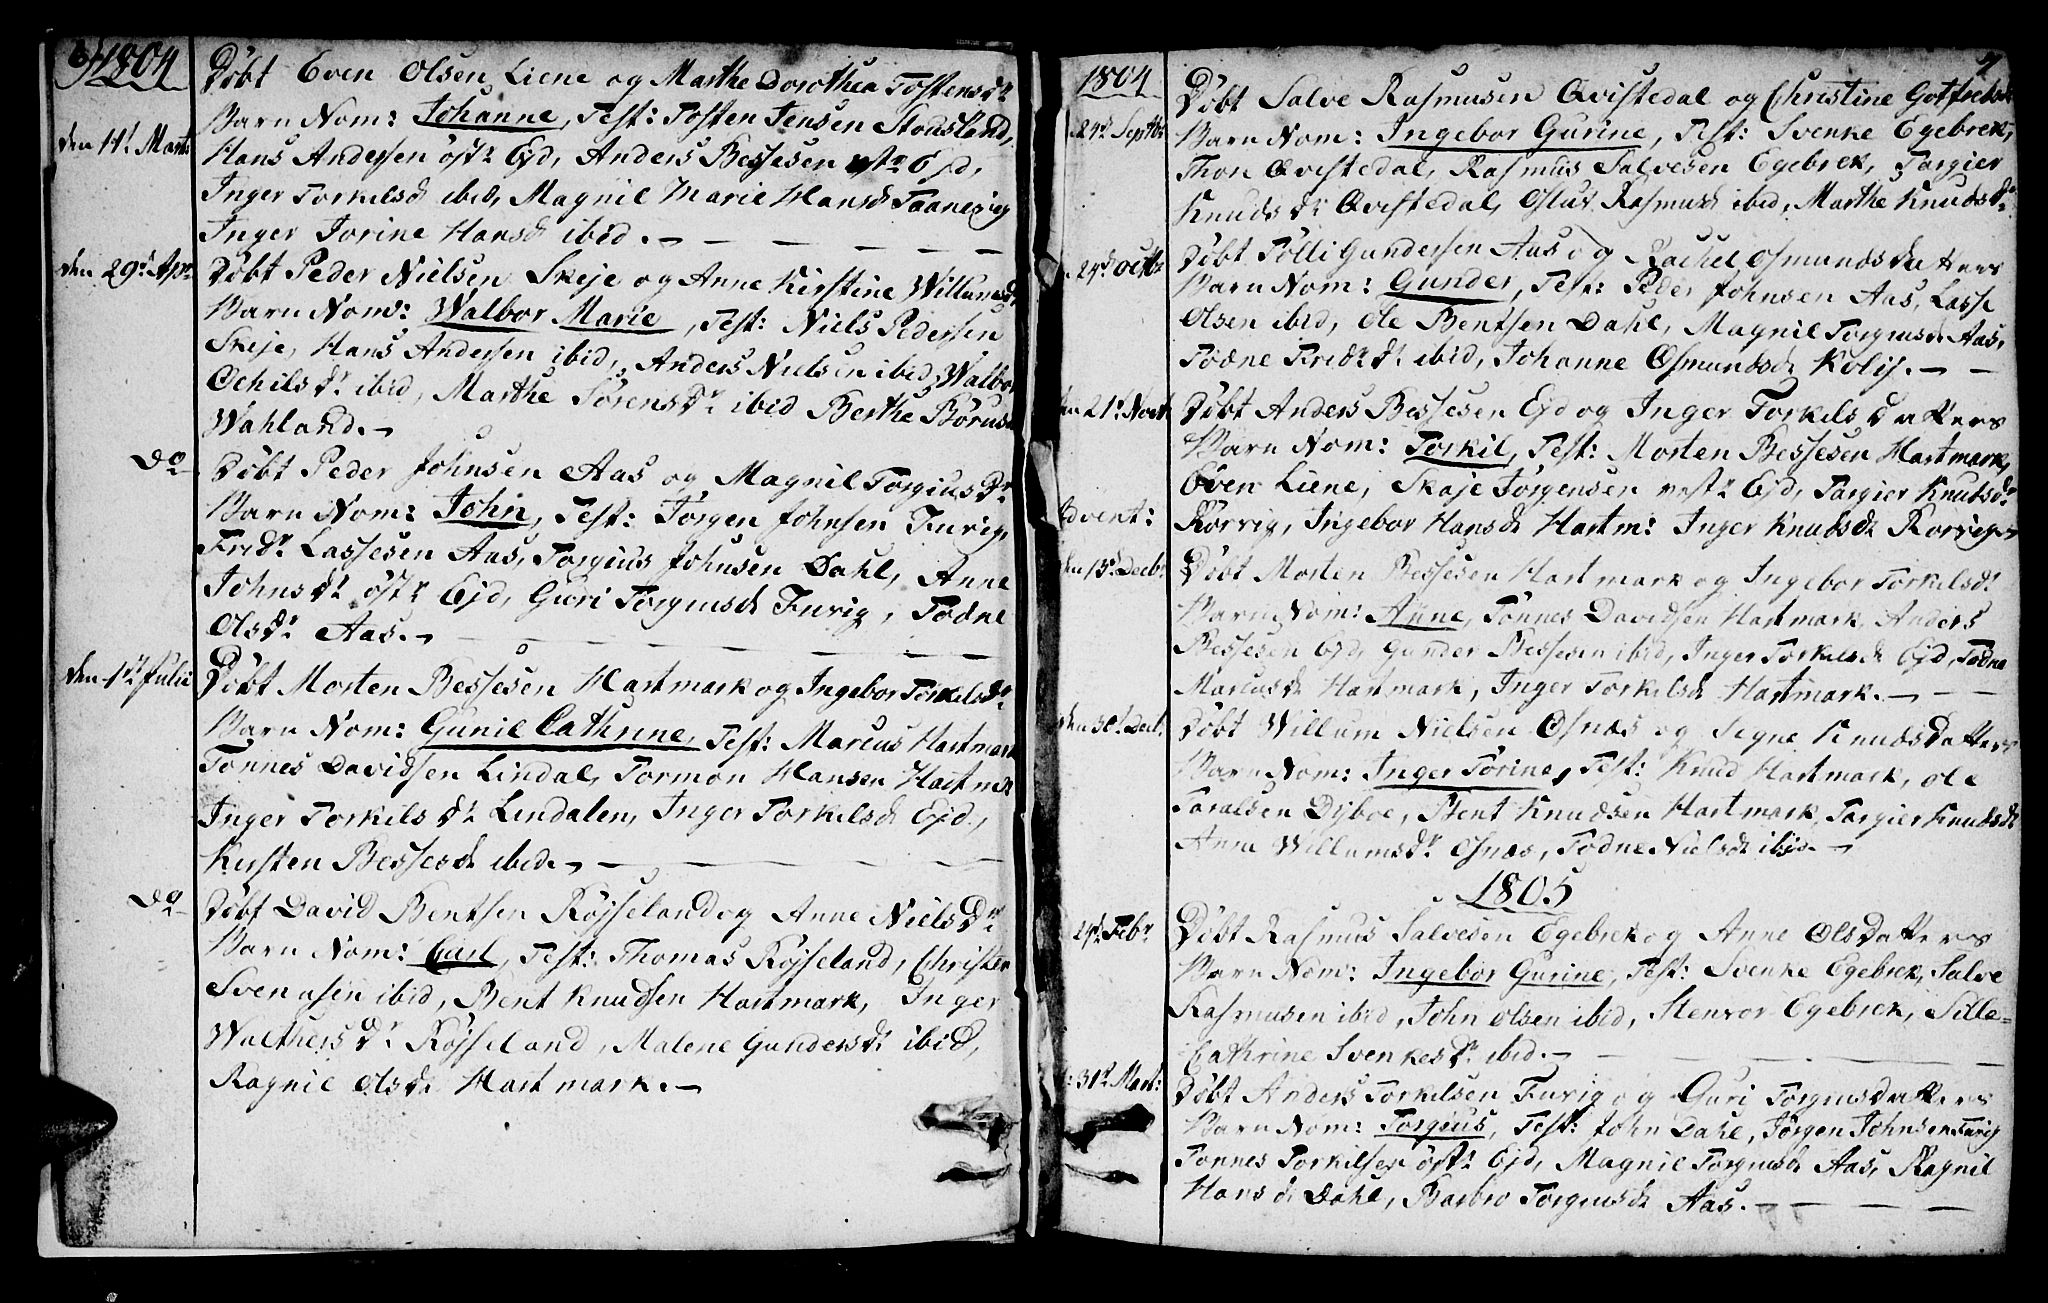 1804
Døbt Even Olsen Liene og Marthe Dorothea Tostensdr
den 11t Mart: Barn Nom: Johanne, Test: Tosten Jensen Stousland,
Hans Andersen østr Ejd, Anders Bessesen vestr Ejd,
Inger Torkilsd ibid, Magnil Marie Hansd Taanevig
Inger Torine Hansd ibid.
den 29d Apr Døbt Peder Nielsen Skeje og Anne Kirstine Willumsdr
Barn Nom: Walbor Marie, Test: Niels Pedersen
Skeje, Hans Andersen ibid, Anders Nielsen ibid, Walbor
Ochilsdr ibid, Marthe Sørensdr ibid Berthe Børusd
Wahland.
Do Døbt Peder Johnsen Aas og Magnil Torgiusdr
Barn Nom: John, Test: Jørgen Johnsen Furig,
Fredr Lassesen Aas, Torgius Johnsen Dahl, Anne
Johnsdr østr Ejd, Guri Torgiusd Furig, Todne
Olsdr Aas.
den 1st Julii Døbt Morten Bessesen Hartmark og Ingebor Torkilsdr
Barn Nom: Gunil Cathrine, Test: Marcus Hartmark
Tønnes Davidsen Lindal, Tormon Hansen Hartmr
Inger Torkilsdr Lindalen, Inger Torkilsd Ejd,
Kirsten Bessesd ibid.
Do Døbt David Bentsen Røjseland og Anne Nielsdr
Barn Nom: Carl, Test: Thomas Røjseland, Christen
Svennsen ibid, Bent Knudsen Hartmark, Inger
Walthersdr Røjseland, Malene Gundersdr ibid,
Ragnil Olsd Hartmark.
7
1804
Døbt Salve Rasmusen Qvistedal og Christine Gotfredsd
24d Septbr Barn Nom: Ingebor Gurine, Test: Svenke Egebrek,
Thor Qvistedal, Rasmus Salvesen Egebrek, Targier
Knudsdr Qvistedal, Oslut Rasmusd ibid, Marthe Knudsdr
24d Octbr Døbt Tølli Gundersen Aas og Rachel Osmundsdatters
Barn Nom: Gunder, Test: Peder Johnsen Aas, Lasse
Olsen ibid, Ole Bentsen Dahl, Magnil Torgiusd Aas,
Todne Fredrdr ibid, Johanne Osmundsd Kolis.
den 21d Novbr Døbt Anders Bessesen Ejd og Inger Torkilsdatters
Barn Nom: Torkil, Test: Morten Bessesen Hartmark,
Even Liene, Skaje Jørgensen vestr Ejd, Targier Knudsdr
Advent: Rørvig, Ingebor Hansd Hartm: Inger Knudsd Rørvig
den 15d Decbr Døbt Morten Bessesen Hartmark og Ingebor Torkilsdr
Barn Nom: Anne, Tønnes Davidsen Hartmark, Anders
Bessesen Ejd, Gunder Bessesen ibid, Inger Torkilsd Ejd, Todne
Marcusd Hartmark, Inger Torkilsd Hartmark.
den 30t Decb. Døbt Willum Nielsen Osnæs og Segne Knudsdatters
Barn Nom: Inger Torine, Test: Knud Hartmark, Ole
Taralsen Dyboe, Bent Knudsen Hartmark, Targier Knudsd
Anne Willumsdr Osnæs, Todne Nielsd ibid.
1805
24d Febr Døbt Rasmus Salvesen Egebrek og Anne Olsdatters
Barn Nom: Ingebor Gurine, Test: Svenke Egebrek, Salve
Rasmusen ibid, John Olsen ibid, Stenvor Egebrek, Sille=
Cathrine Svenkesdr ibid.
31t Mart: Døbt Anders Torkilsen Furig og Guri Torgiusdatters
Barn Nom: Torgius, Test: John Dahl, Jørgen Johnsen Furig
Tønnes Torkilsen østr Ejd, Magnil Torgiusd Aas, Ragnil
Hansd Dahl, Barbro Torgiusd Aas.